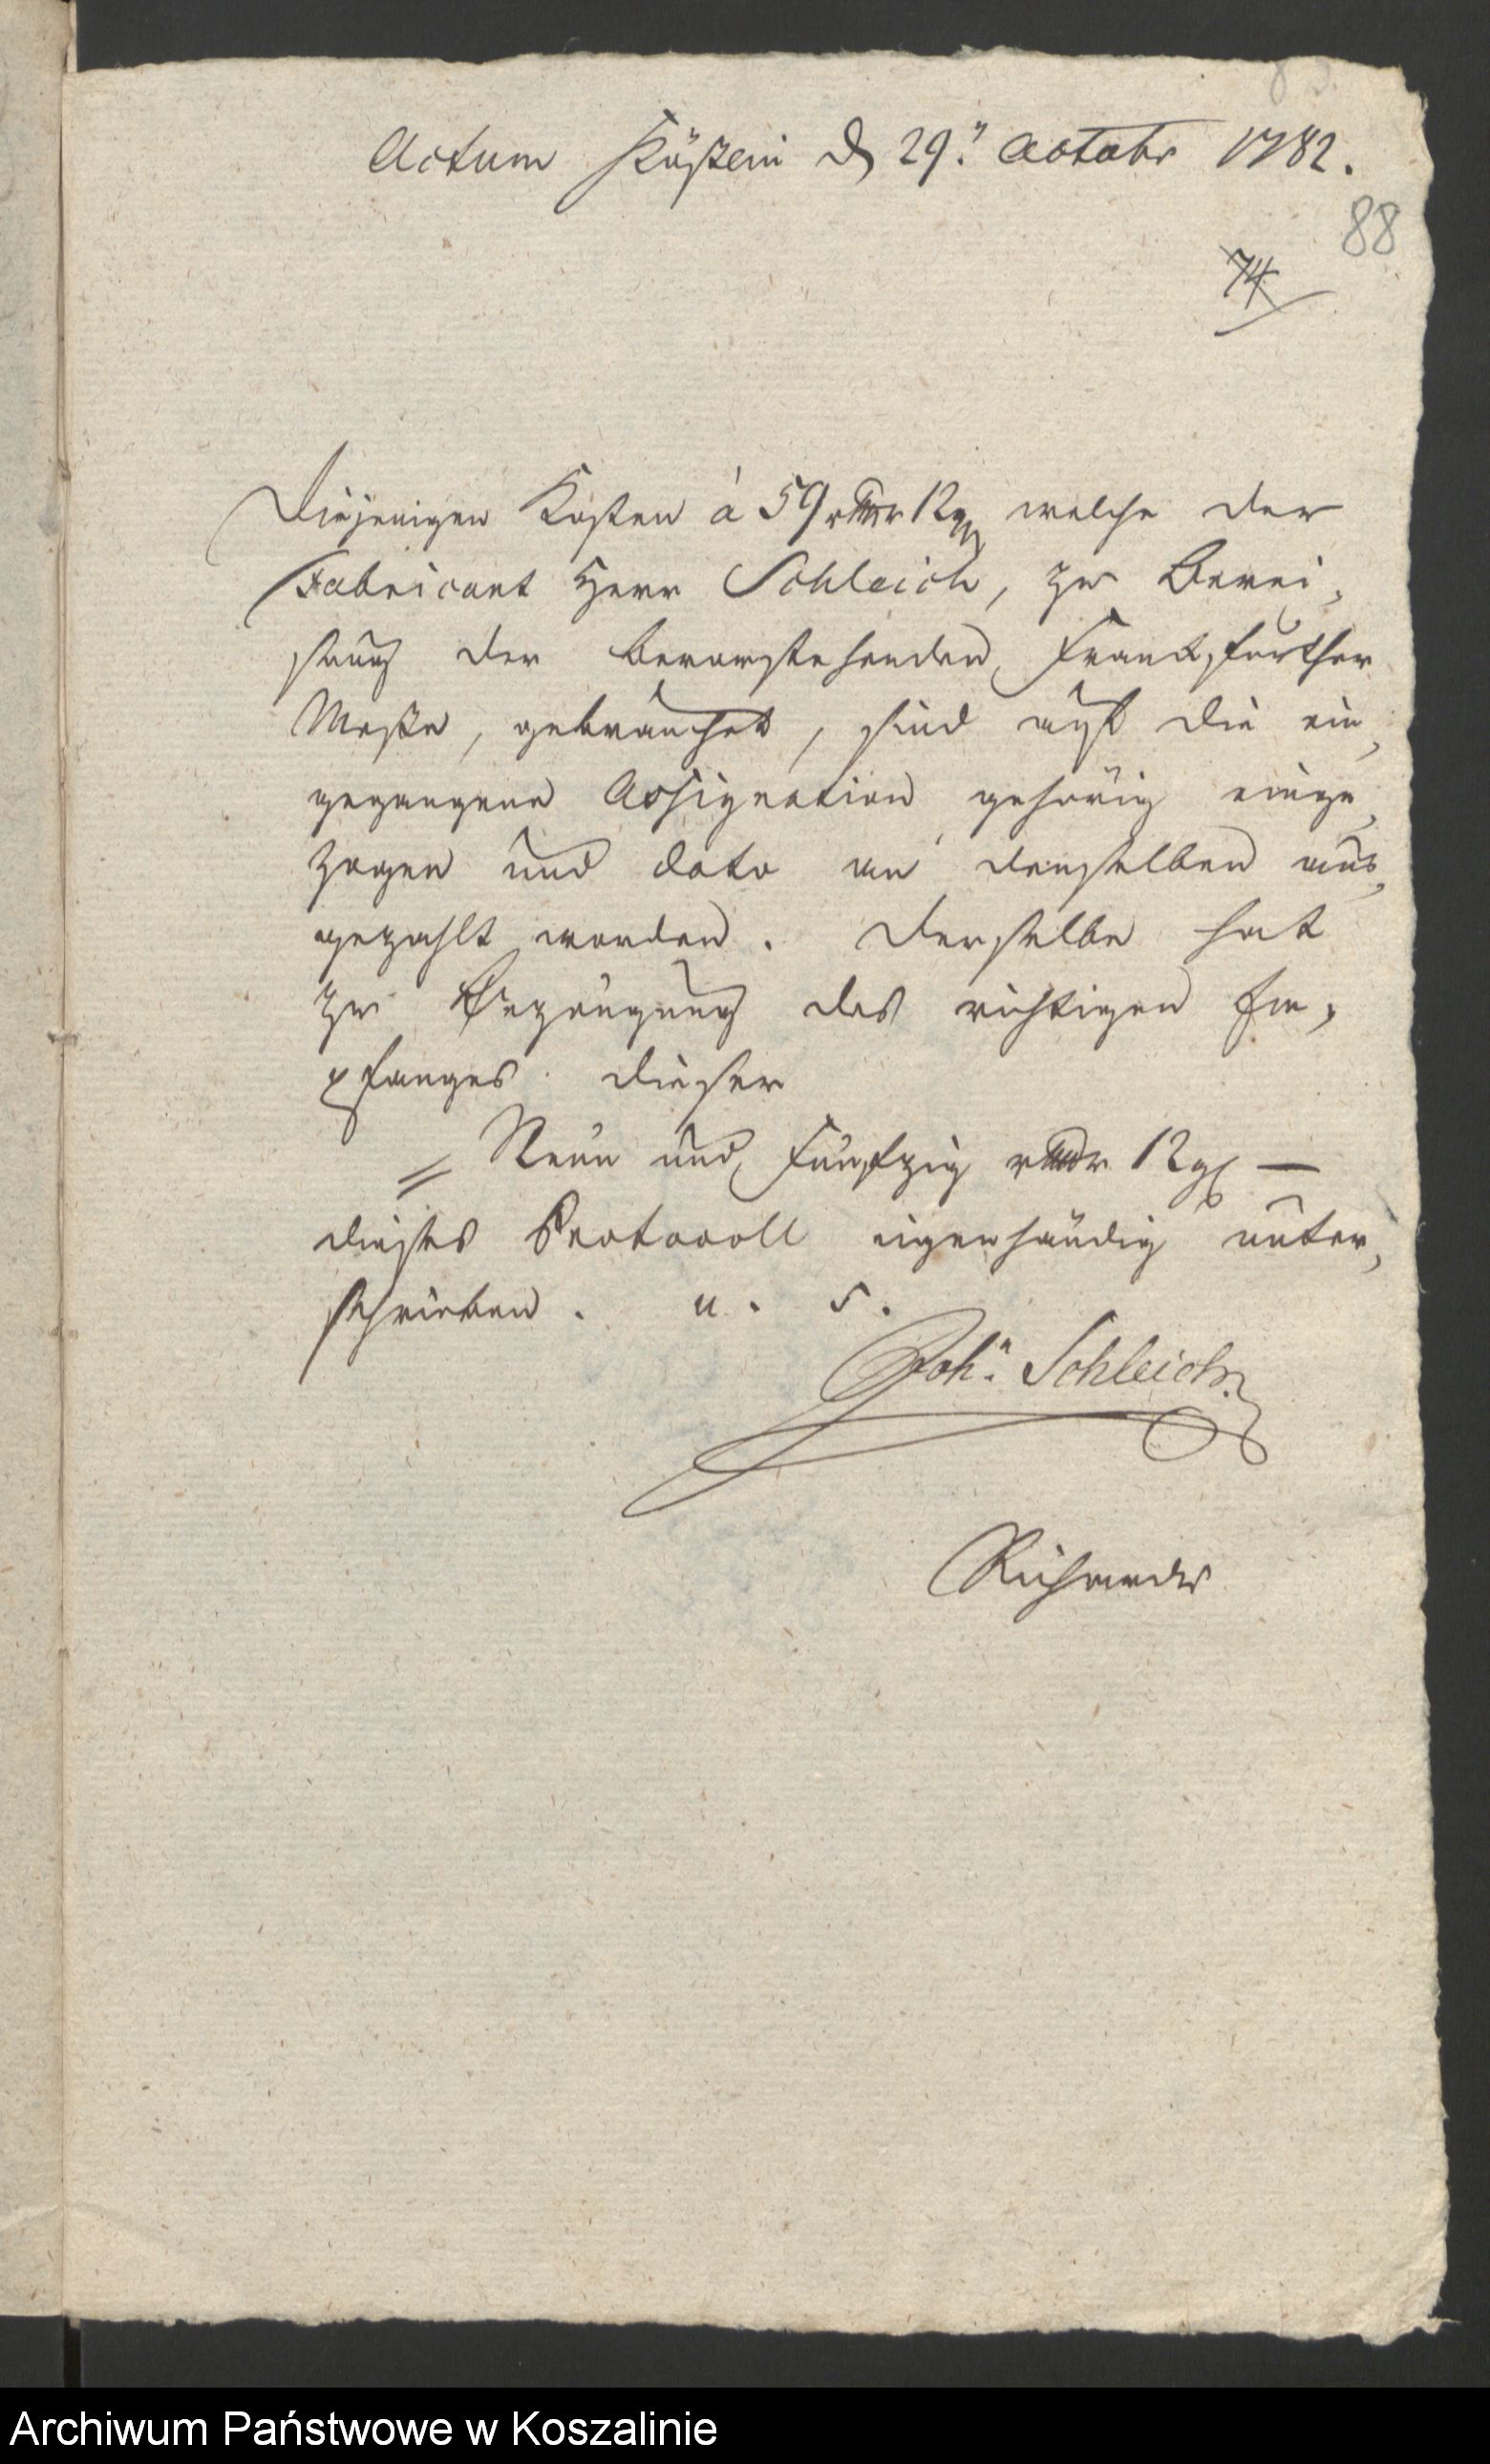 Actum Cößlin d 29t. Octobr 1782.
88
74
Diejenigen Kosten à 59 rthlr 12 gr welche der
Fabricant Herr Schleich, zur Berei,
sung der bevorstehenden Franckfurther
Meße, gebrauchet, sind auf die ein,
gegangene Assignation gehörig einge,
zogen und dato an denselben aus,
gezahlt worden. Derselbe hat
zur Bezeugung des richtigen Em,
pfanges dieser
= Neun und Fünfzig rthlr 12 gr —
dieses Protocoll eigenhändig unter,
schrieben. u. s.
John. Schleich.
Richardi
Archiwum Państwowe w Koszalinie